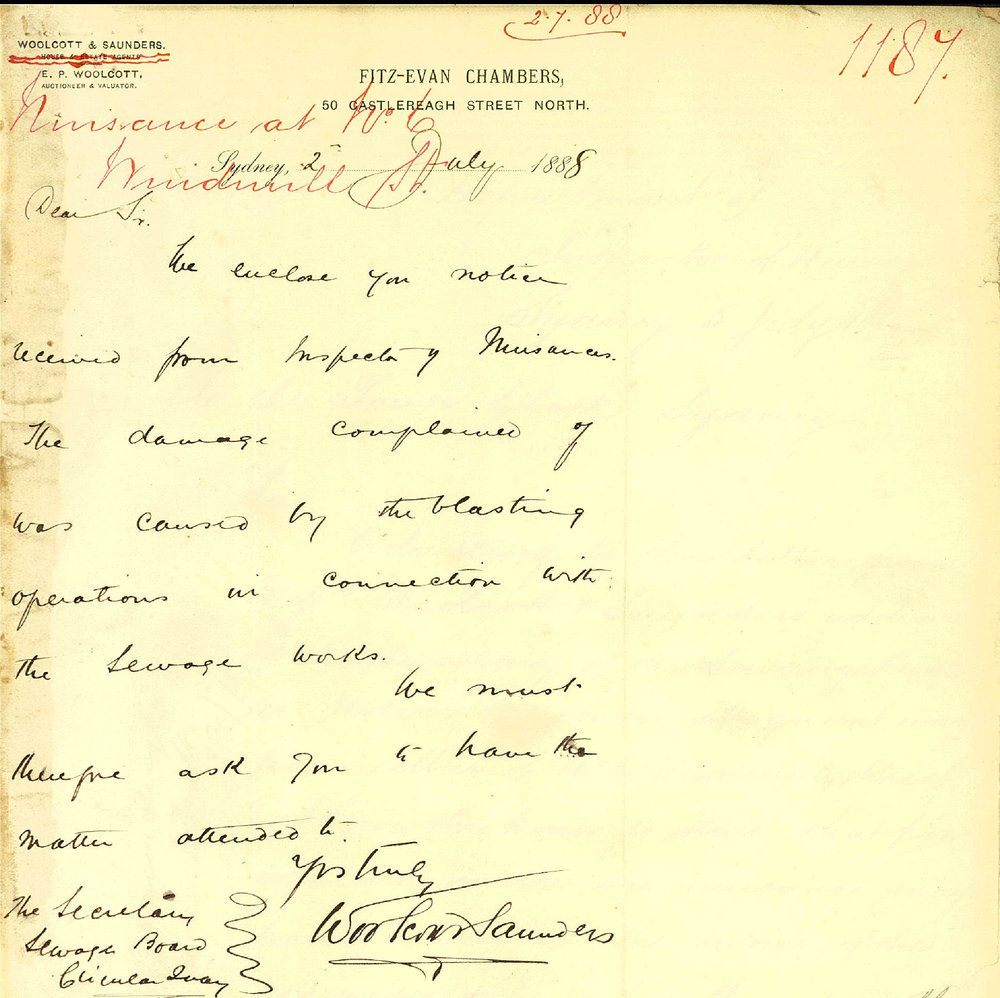 2.7.88
1187.
WOOLCOTT & SAUNDERS.
HOUSE & ESTATE AGENTS
E. P. WOOLCOTT,
AUCTIONEER & VALUATOR.
FITZ-EVAN CHAMBERS,
50 CASTLEREAGH STREET NORTH.
Nuisance at No. 6
Windmill St.
Sydney, 2 July 1888
Dear Sir.
We enclose you notice
received from Inspector of Nuisances.
The damage complained of
was caused by the blasting
operations in connection with
the Sewage Works.
We must
therefore ask you to have the
matter attended to.
Yrs truly
Woolcott Saunders
The Secretary
Sewage Board
Circular Quay